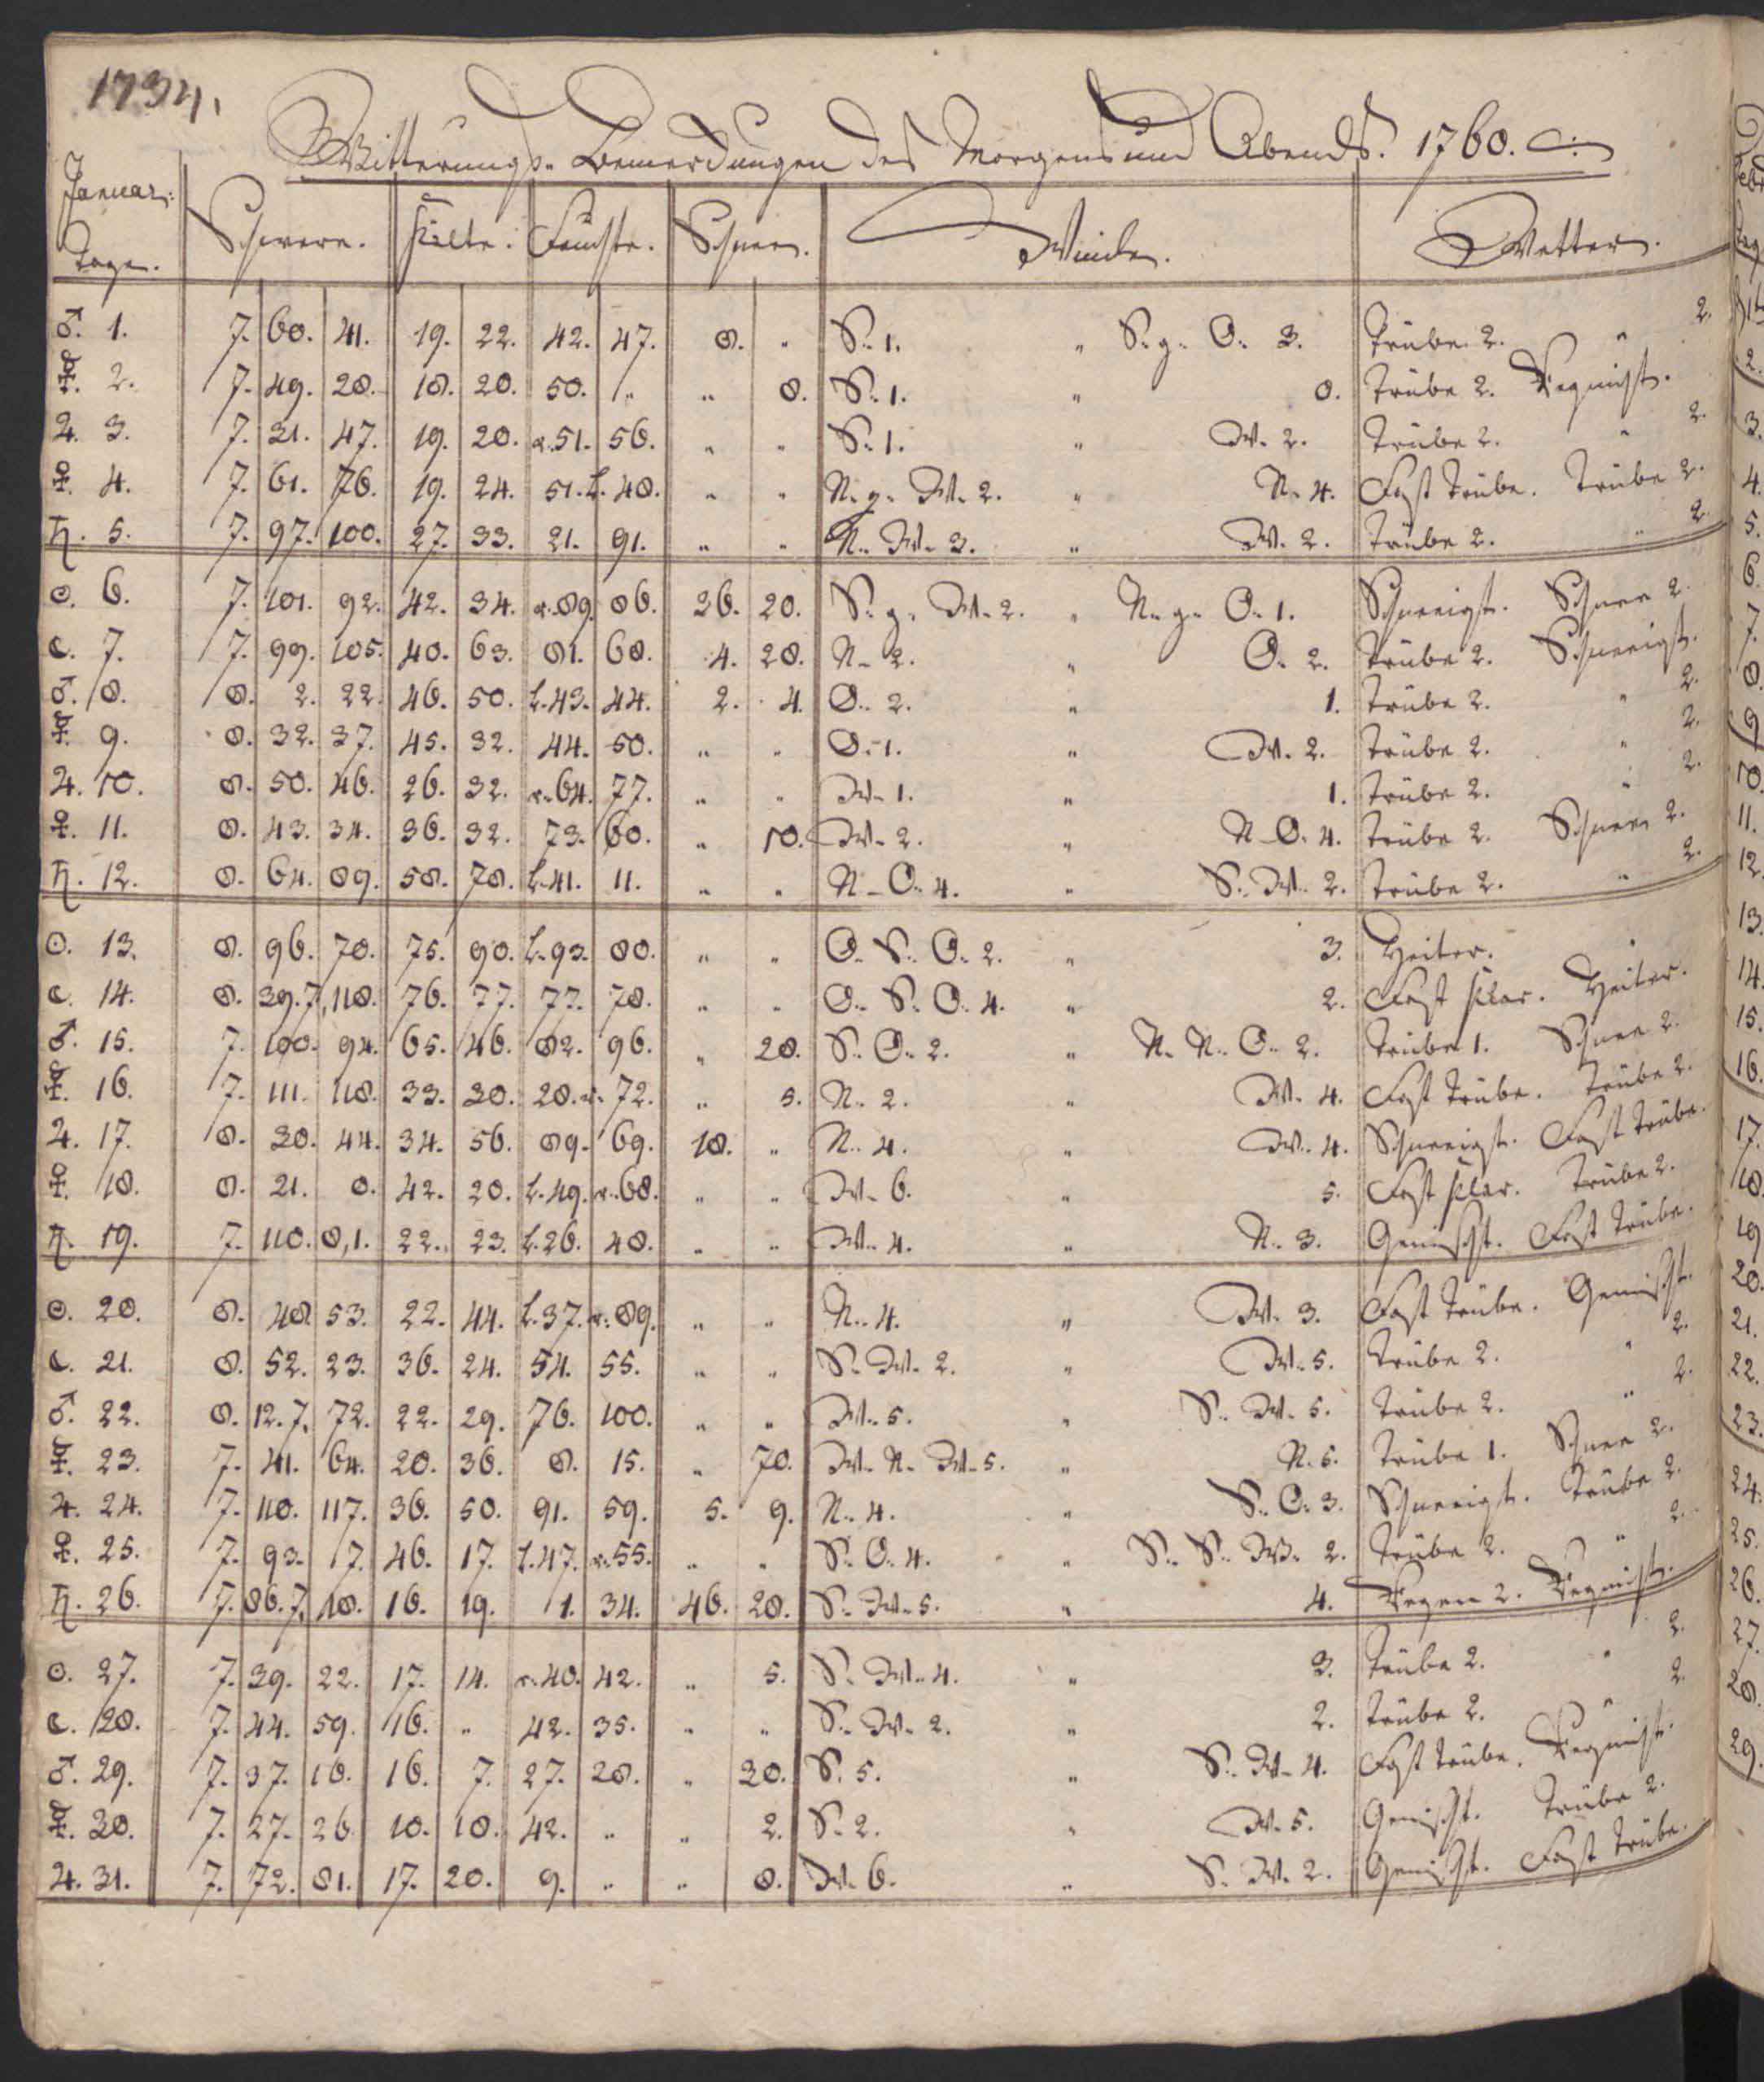 1734.
Witterungs-Bemerckungen des Morgens und Abends. 1760.
Januar:
Tage. Schwere. Kälte. Feuchte. Schnee. Winde. Wetter.
♂. 1. 7. 60. 41. 19. 22. 42. 47. 8. " S. 1. " S. g. O. 3. Trübe 2. " 2.
☿. 2. 7. 49. 28. 18. 20. 50. " " 8. S. 1. " 0. Trübe 2. Regnicht.
♃. 3. 7. 31. 47. 19. 20. r. 51. 56. " " S. 1. " W. 2. Trübe 2. " 2.
♀. 4. 7. 61. 76. 19. 24. 51. L. 48. " " N. g. W. 2. " N. 4. Fast Trübe. Trübe 2.
♄. 5. 7. 97. 100. 27. 33. 21. 91. " " N. W. 3. " W. 2. Trübe 2. " 2.
☉. 6. 7. 101. 92. 42. 34. r. 89. 86. 36. 20. S. g. W. 2. " N. g. O. 1. Schneeigt. Schnee 2.
☾. 7. 7. 99. 105. 40. 63. 81. 68. 4. 28. N. 2. " O. 2. Trübe 2. Schneeigt.
♂. 8. 8. 2. 22. 46. 50. L. 43. 44. 2. 4. O. 2. " 1. Trübe 2. " 2.
☿. 9. 8. 32. 37. 45. 32. 44. 50. " " O. 1. " W. 2. Trübe 2. " 2.
♃. 10. 8. 50. 46. 26. 32. r. 64. 77. " " W. 1. " 1. Trübe 2. " 2.
♀. 11. 8. 43. 34. 36. 32. 73. 60. " 10. W. 2. " N. O. 4. Trübe 2. Schnee 2.
♄. 12. 8. 64. 89. 58. 78. L. 41. 11. " " N. O. 4. " S. W. 2. Trübe 2. " 2.
☉. 13. 8. 96. 70. 75. 90. L. 93. 80. " " O. S. O. 2. " 3. Heiter. "
☾. 14. 8. 39. 7, 118. 76. 77. 77. 78. " " O. S. O. 4. " 2. Fast klar. Heiter.
♂. 15. 7. 100. 94. 65. 46. 82. 96. " 28. S. O. 2. " N. N. O. 2. Trübe 1. Schnee 2.
☿. 16. 7. 111. 118. 33. 30. 28. r. 72. " 5. N. 2. " W. 4. Fast Trübe. Trübe 2.
♃. 17. 8. 30. 44. 34. 56. 89. 69. 18. " N. 4. " W. 4. Schneeigt. Fast Trübe.
♀. 18. 8. 21. 0. 42. 20. L. 49. r. 68. " " W. 6. " 5. Fast klar. Trübe 2.
♄. 19. 7. 110. 8, 1. 22. 23. L. 26. 48. " " W. 4. " N. 3. Gemischt. Fast Trübe.
☉. 20. 8. 48. 53. 22. 44. L. 37. r. 89. " " N. 4. " W. 3. Fast Trübe. Gemischt.
☾. 21. 8. 52. 23. 36. 24. 54. 55. " " S. W. 2. " W. 5. Trübe 2. " 2.
♂. 22. 8. 12. 7, 72. 22. 29. 76. 100. " " W. 5. " S. W. 5. Trübe 2. " 2.
☿. 23. 7. 41. 64. 20. 36. 8. 15. " 70. W. N. W. 5. " N. 5. Trübe 1. Schnee 2.
♃. 24. 7. 110. 117. 36. 50. 91. 59. 5. 9. N. 4. " S. O. 3. Schneeigt. Trübe 2.
♀. 25. 7. 93. 7. 46. 17. L. 47. r. 55. " " S. O. 4. " S. S. W. 2. Trübe 2. " 2.
♄. 26. 7. 36. 7, 18. 16. 19. 1. 34. 46. 28. S. W. 5. " 4. Regen 2. Regnicht.
☉. 27. 7. 39. 22. 17. 14. r. 40. 42. " 5. S. W. 4. " 3. Trübe 2. " 2.
☾. 28. 7. 44. 59. 16. " 42. 35. " " S. W. 2. " 2. Trübe 2. " 2.
♂. 29. 7. 37. 16. 16. 7. 27. 28. " 30. S. 5. " S. W. 4. Fast Trübe. Regnicht.
☿. 30. 7. 27. 26. 10. 18. 42. " " 2. S. 2. " W. 5. Gemischt. Trübe 2.
♃. 31. 7. 72. 81. 17. 20. 9. " " 8. W. 6. " S. W. 2. Gemischt. Fast Trübe.
2.
3.
4.
5.
6.
7.
8.
9
10.
11.
12.
13.
14.
15.
16.
17.
18
19
20.
21.
22.
23.
24.
25.
26.
27.
28.
29.